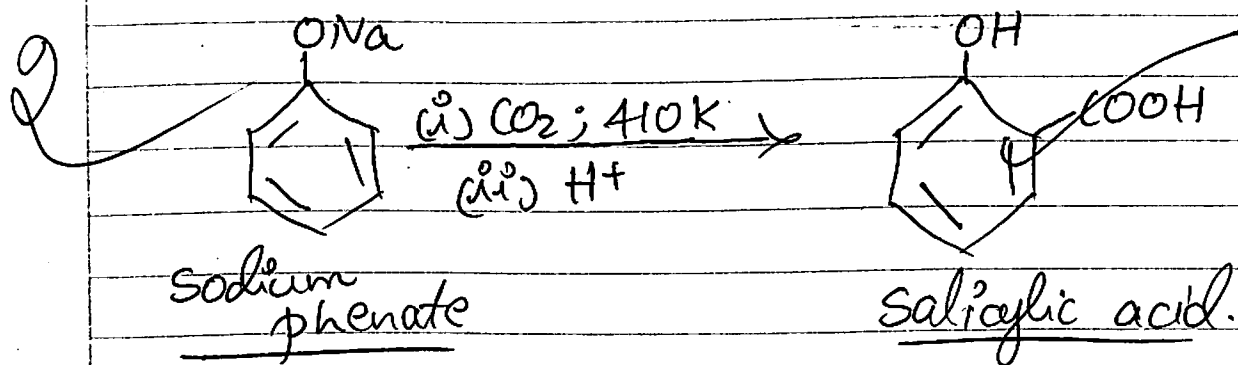 2
ONa
OH
(i) CO2 ; 410K
COOH
(ii) H+
Sodium
phenate
Salicylic acid.